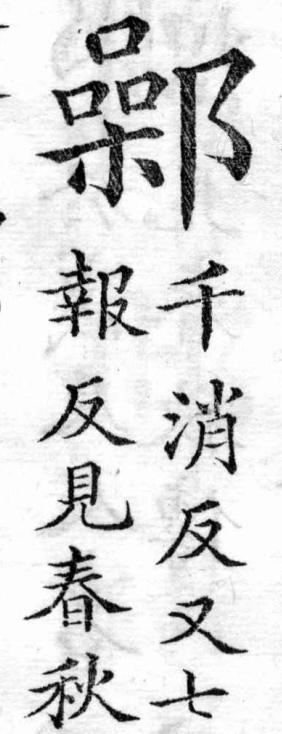 鄵
千消反又七
報反見春秋